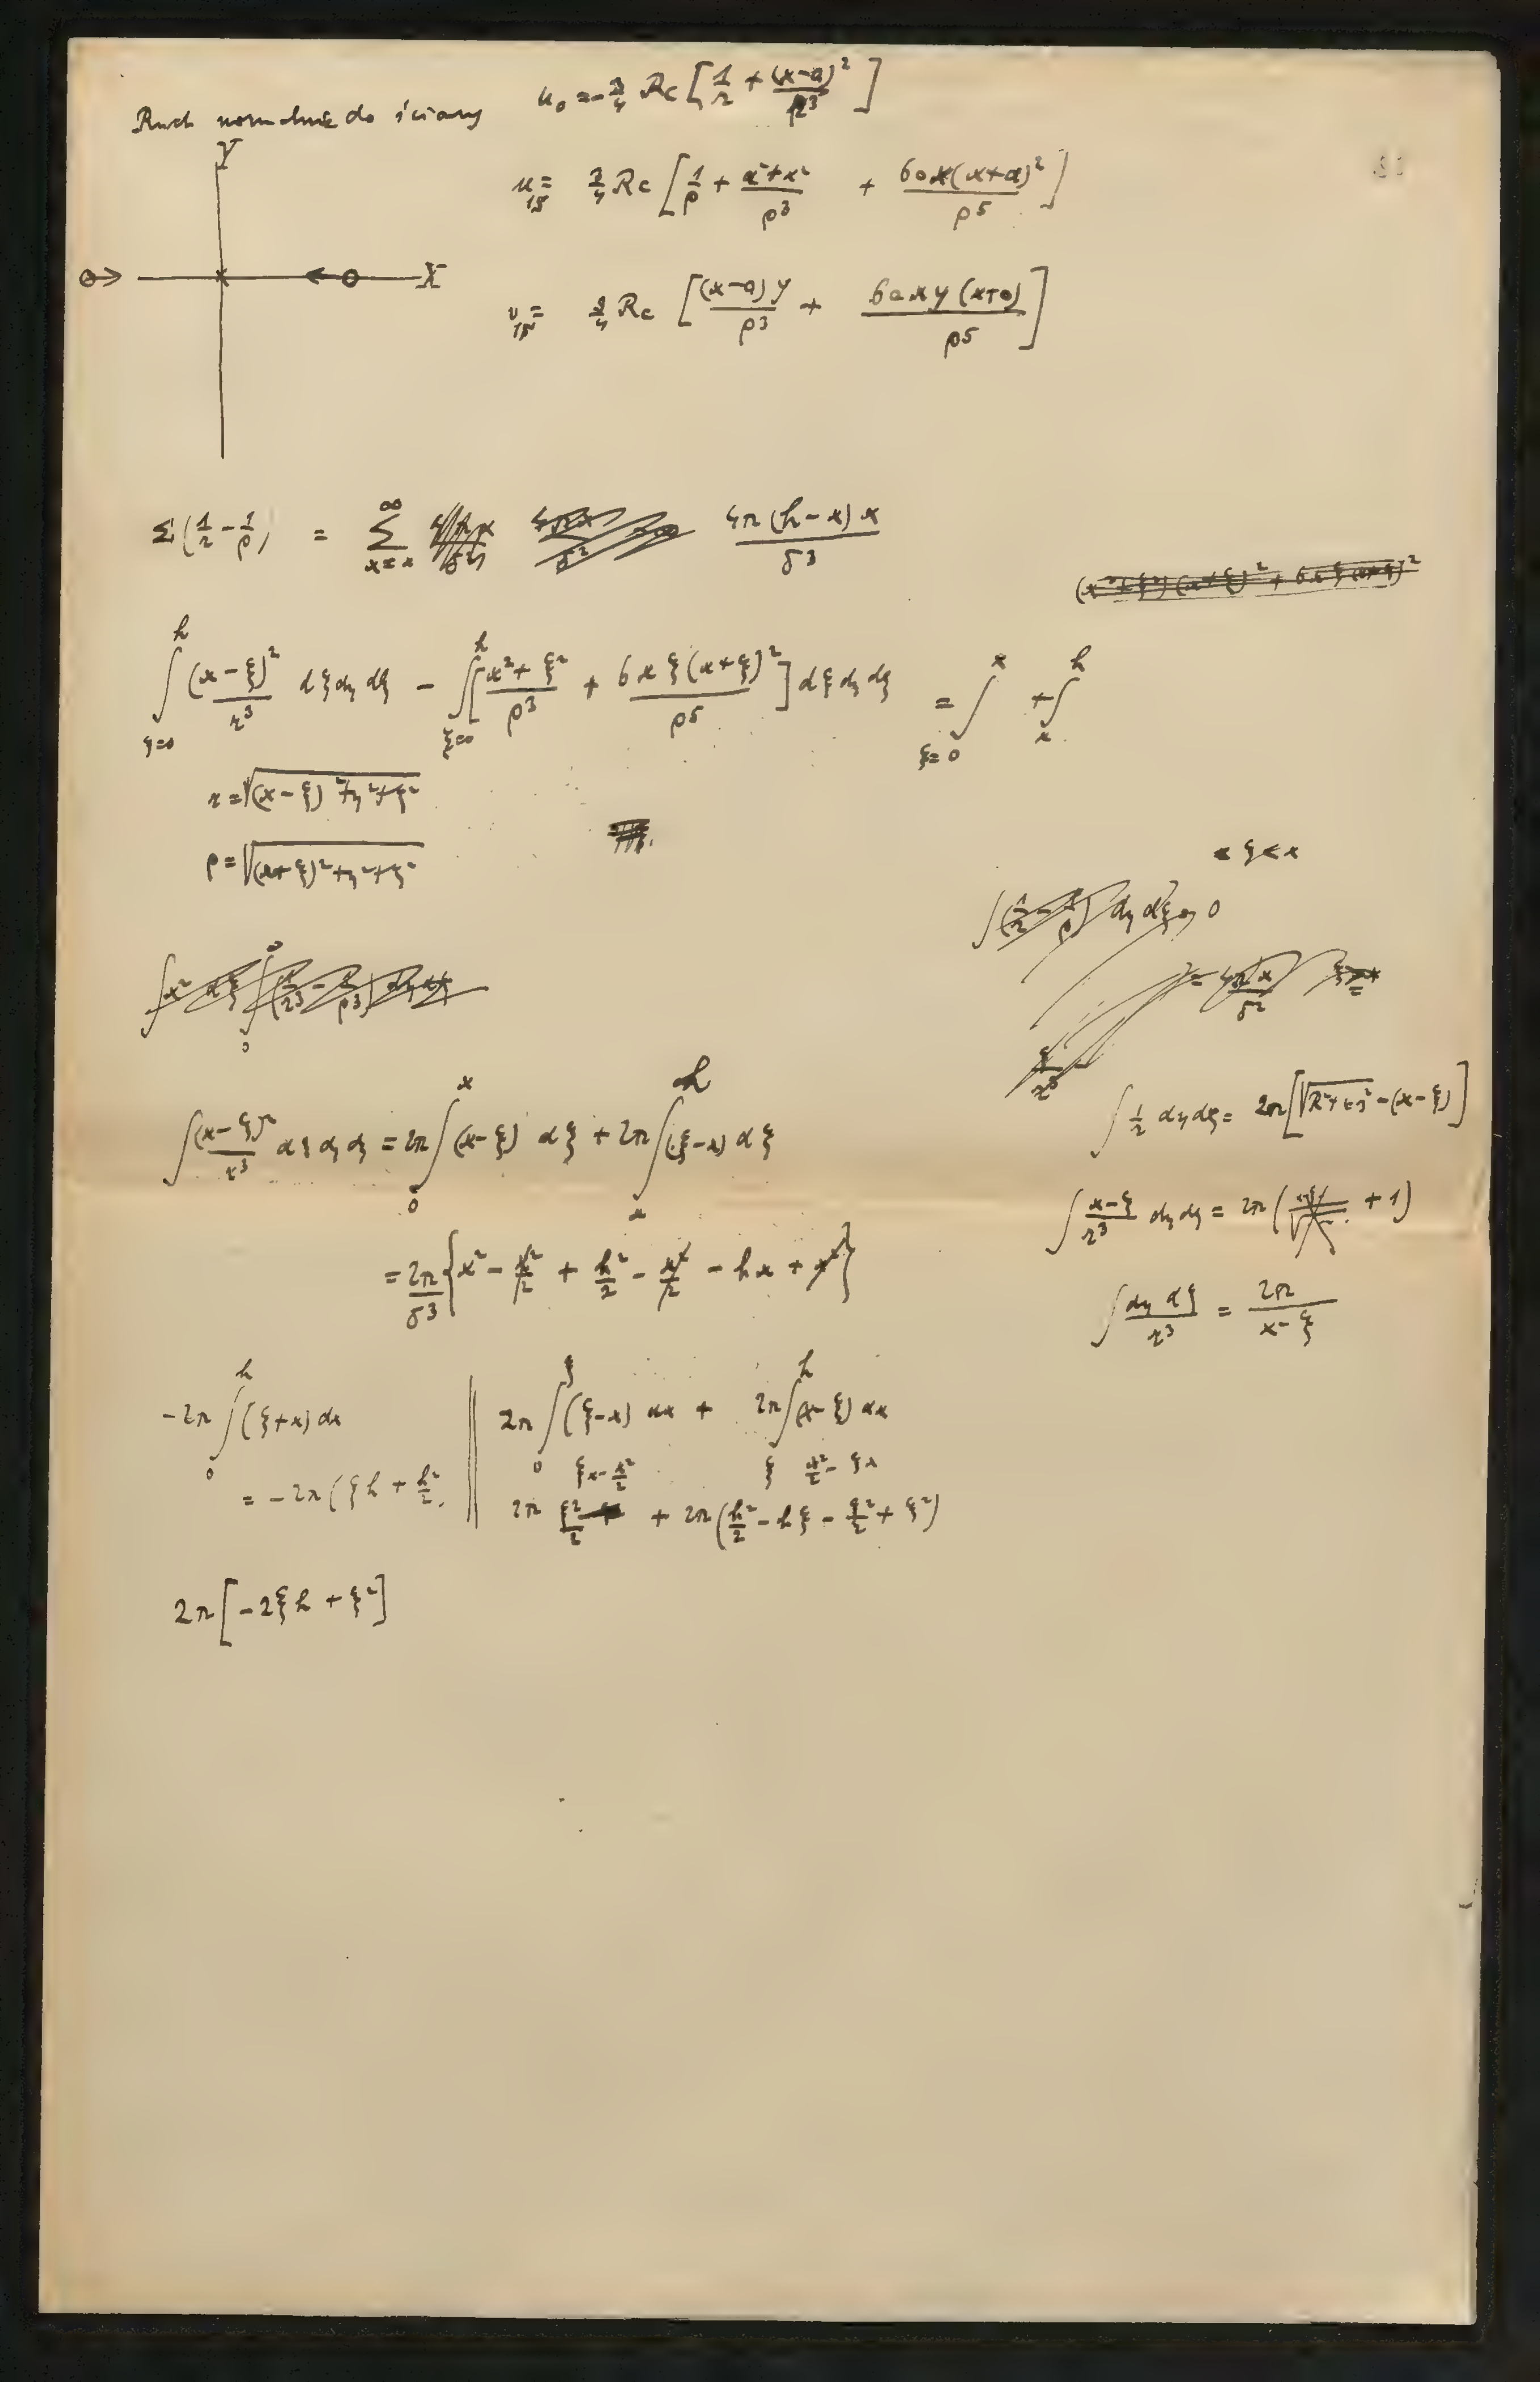 Ruch normalnie do ściany
u₀ = -¾ Rc [1/r + (x-a)²/r³]
Y
X
u = ¾ Rc [1/ρ + (a²+x²)/ρ³ + 6ax(x+a)²/ρ⁵]
v = ¾ Rc [(x-a)y/ρ³ + 6axy(x+a)/ρ⁵]
Σ(1/r - 1/ρ) = Σ_{x=x}^{∞} 4π(h-x)x/δ³
∫_{ξ=0}^{h} (x-ξ)²/r³ dξ dη dζ - ∫_{ξ=0}^{h} [(x²+ξ²)/ρ³ + 6xξ(x+ξ)²/ρ⁵] dξ dη dζ = ∫_{ξ=0}^{x} + ∫_{x}^{h}
r = √((x-ξ)²+η²+ζ²)
ρ = √((x+ξ)²+η²+ζ²)
ξ < x
∫(x-ξ)²/r³ dξ dη dζ = 2π∫_0^x (x-ξ) dξ + 2π∫_x^h (ξ-x) dξ
= 2π/δ³ {x² - x²/2 + h²/2 - x²/2 - hx + x²}
∫ 1/r dη dζ = 2π[√(R²+(x-ξ)²) - (x-ξ)]
∫ (x-ξ)/r³ dη dζ = 2π( + 1)
∫ dη dζ/r³ = 2π/(x-ξ)
-2π∫_0^h (ξ+x) dx
= -2π(ξh + h²/2
2π∫_0^ξ (ξ-x) dx + 2π∫_ξ^h (x-ξ) dx
ξx - x²/2 x²/2 - ξx
2π ξ²/2 + 2π(h²/2 - hξ - ξ²/2 + ξ²)
2π[-2ξh + ξ²]